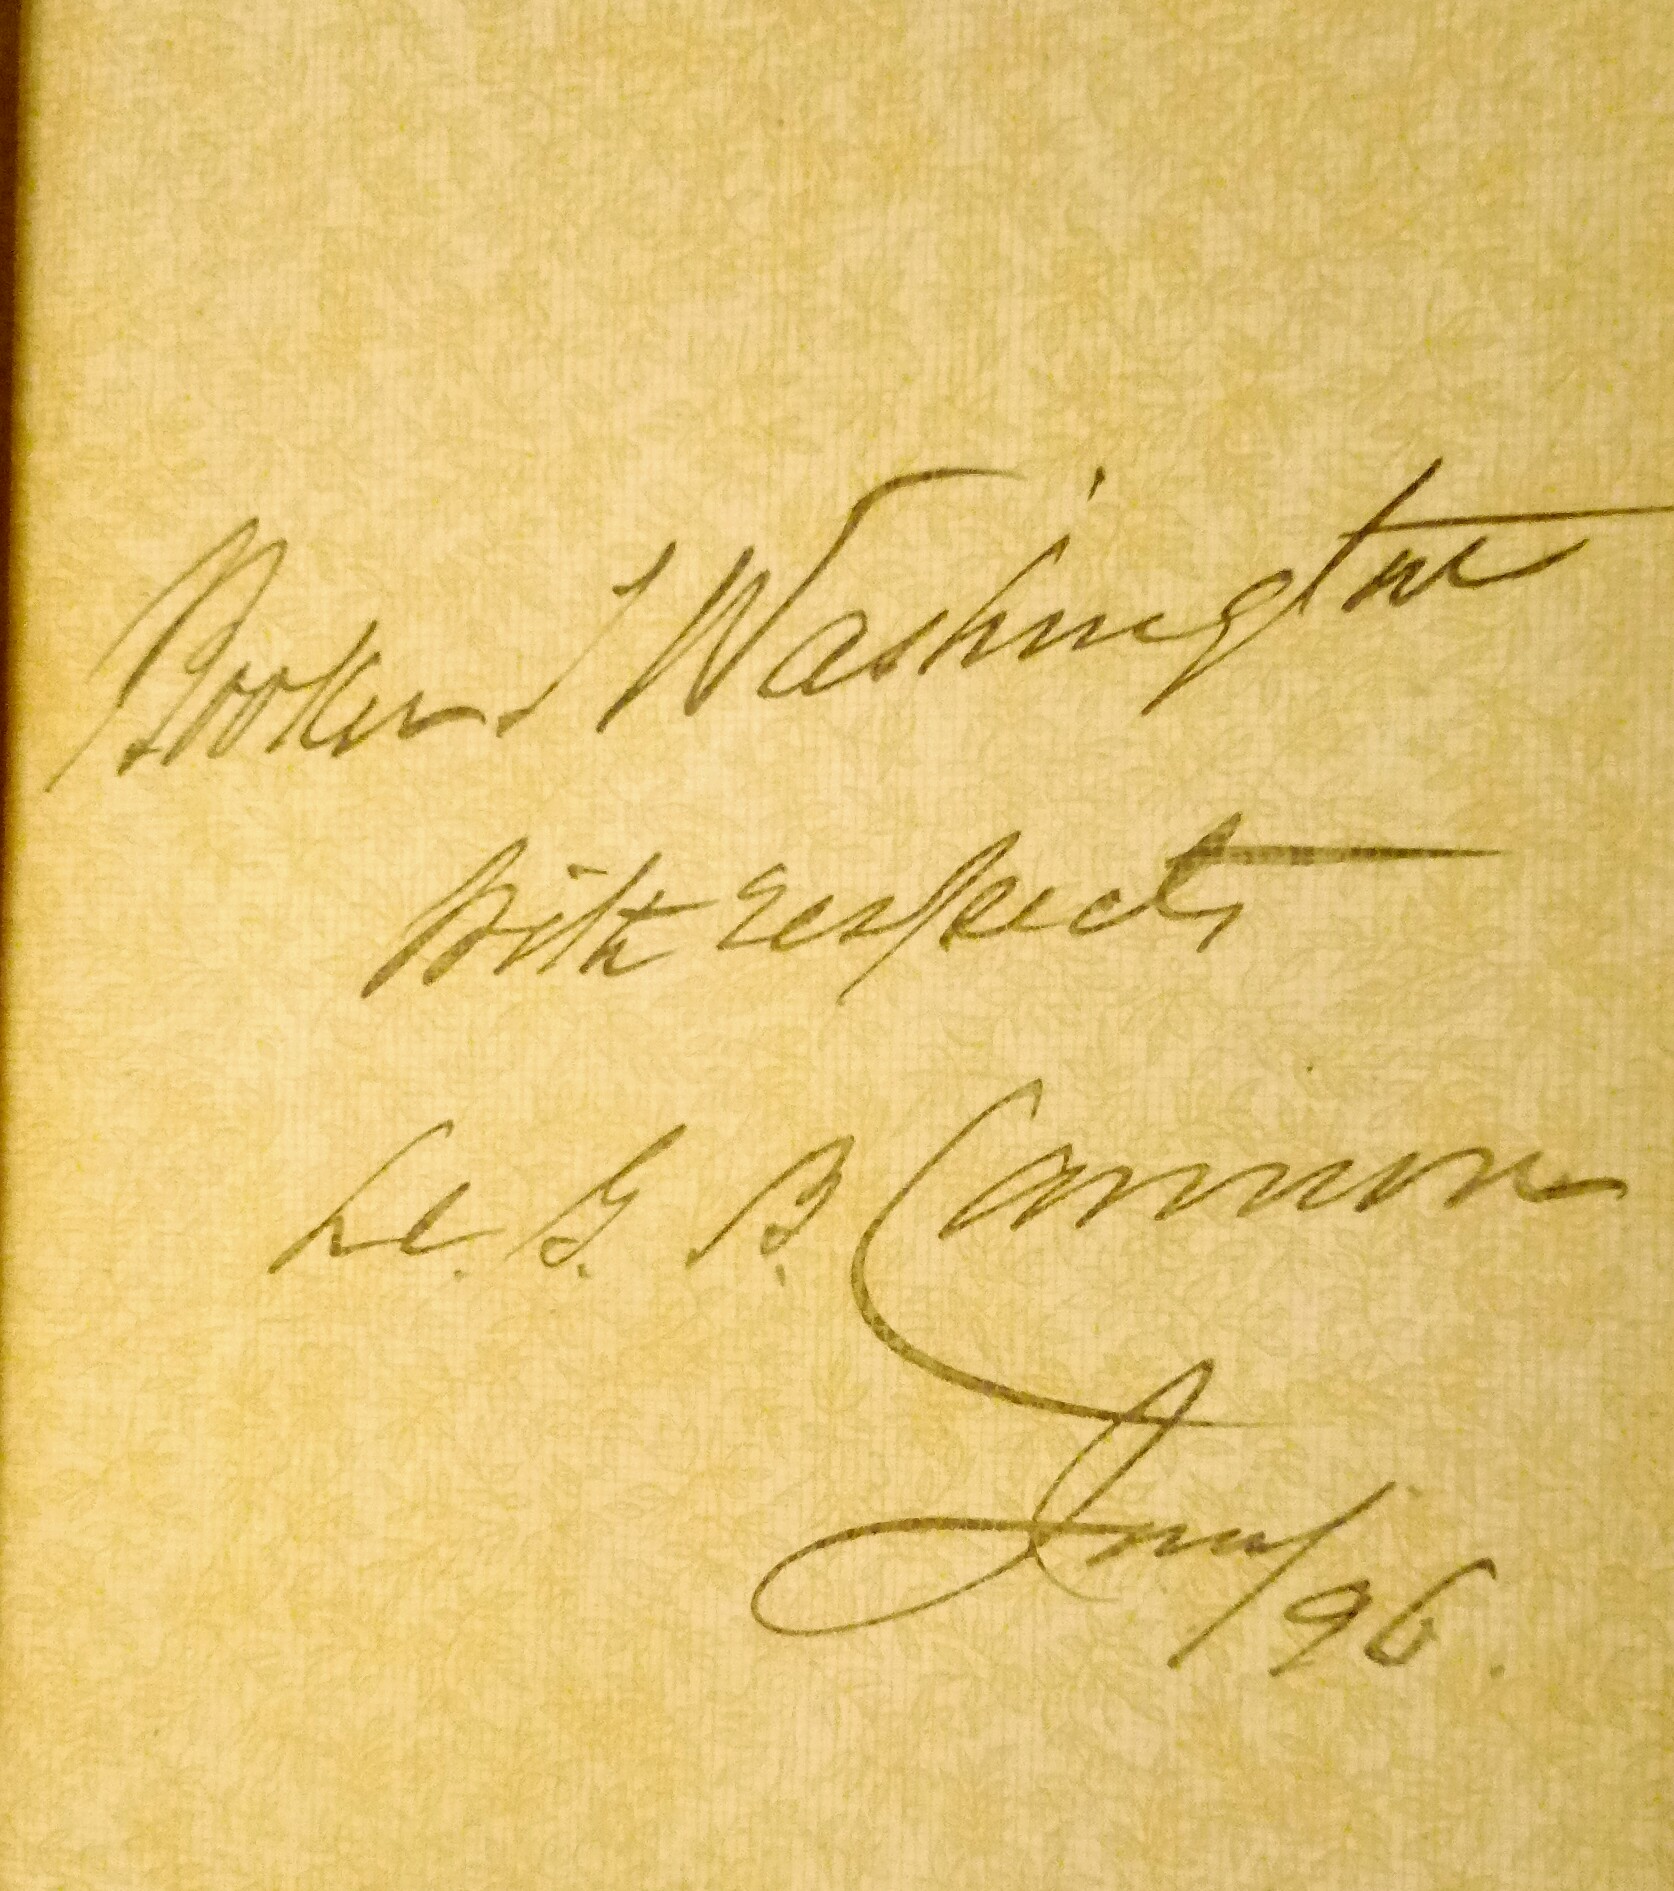 Booker T Washington
With respects
Le. G. B. Cannon
June/96.